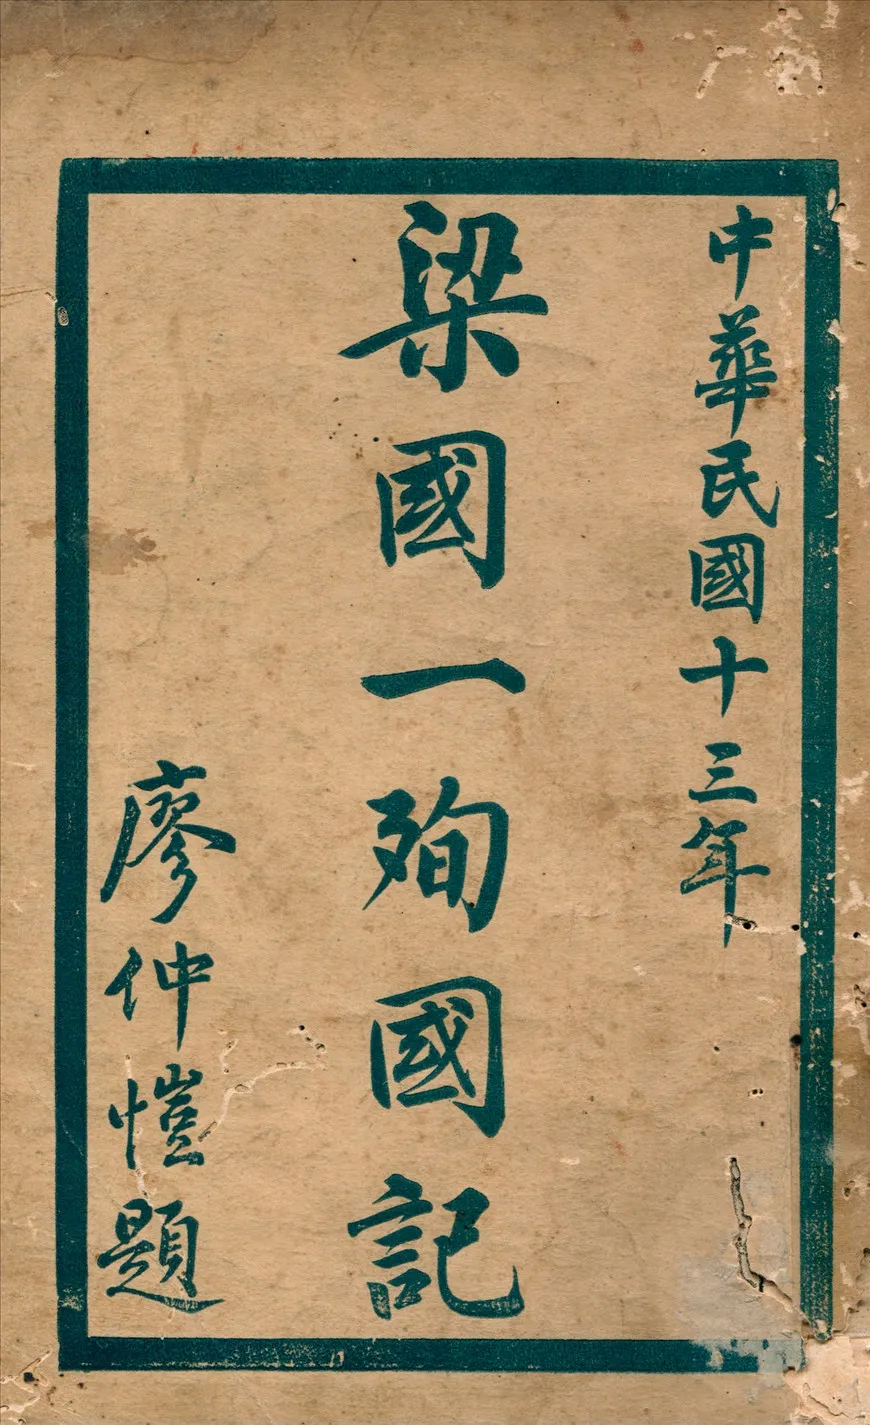 中華民國十三年
梁國一殉國記
廖仲愷題